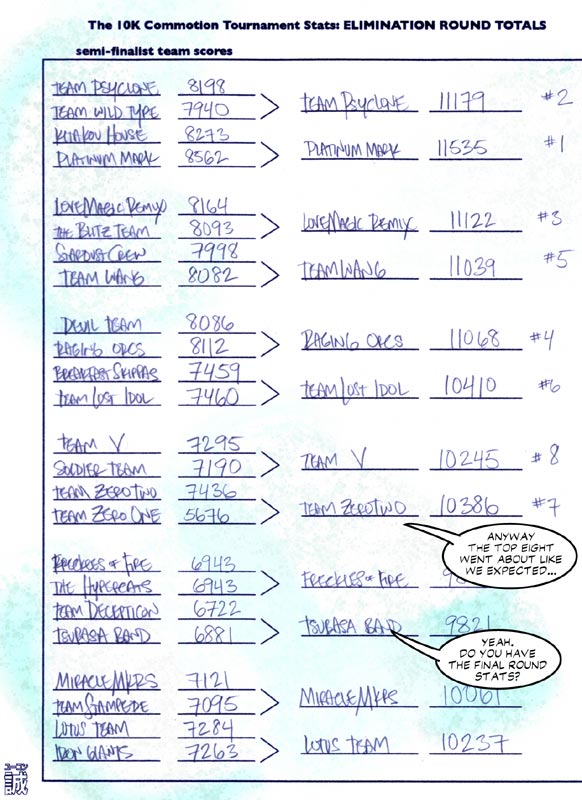 The 10K Commotion Tournament Stats: ELIMINATION ROUND TOTALS
semi-finalist team scores
TEAM PSYCLONE 8198
TEAM WILD TYPE 7940
> TEAM PSYCLONE 11179 #2
KITAKOV HOUSE 8273
PLATINUM MARK 8562
> PLATINUM MARK 11535 #1
LOVEMAGIC REMIX 8164
THE BLITZ TEAM 8093
> LOVEMAGIC REMIX 11122 #3
STARDUST CREW 7998
TEAM WANG 8082
> TEAM WANG 11039 #5
DEVIL TEAM 8086
RAGING ORCS 8112
> RAGING ORCS 11068 #4
BREAKFAST SKIPPAS 7459
TEAM LOST IDOL 7460
> TEAM LOST IDOL 10410 #6
TEAM V 7295
SOLDIER TEAM 7190
> TEAM V 10245 #8
TEAM ZEROTWO 7436
TEAM ZERO ONE 5676
> TEAM ZEROTWO 10386 #7
FRECKLES OF FIRE 6943
THE HYPERCATS 6943
> FRECKLES OF FIRE
TEAM DECEPTICON 6722
TSUBASA BAND 6881
> TSUBASA BAND 9821
MIRACLE MKRS 7121
TEAM STAMPEDE 7095
> MIRACLE MKRS 10061
LOTUS TEAM 7284
IRON GIANTS 7263
> LOTUS TEAM 10237
ANYWAY
THE TOP EIGHT
WENT ABOUT LIKE
WE EXPECTED...
YEAH.
DO YOU HAVE
THE FINAL ROUND
STATS?